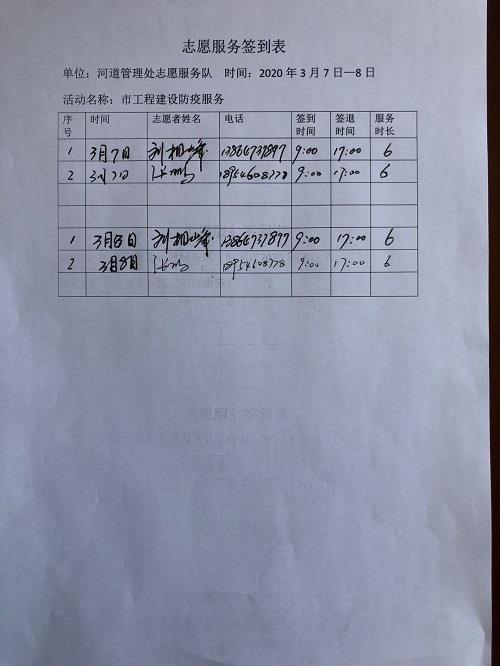 志愿服务签到表
单位：河道管理处志愿服务队 时间：2020 年 3 月 7 日—8 日
活动名称：市工程建设防疫服务
序号 时间 志愿者姓名 电话 签到时间 签退时间 服务时长
1 3月7日 刘相峰 13864737897 9:00 17:00 6
2 3月7日 张鹏 18954608778 9:00 17:00 6
1 3月8日 刘相峰 13864737897 9:00 17:00 6
2 3月8日 张鹏 18954608778 9:00 17:00 6